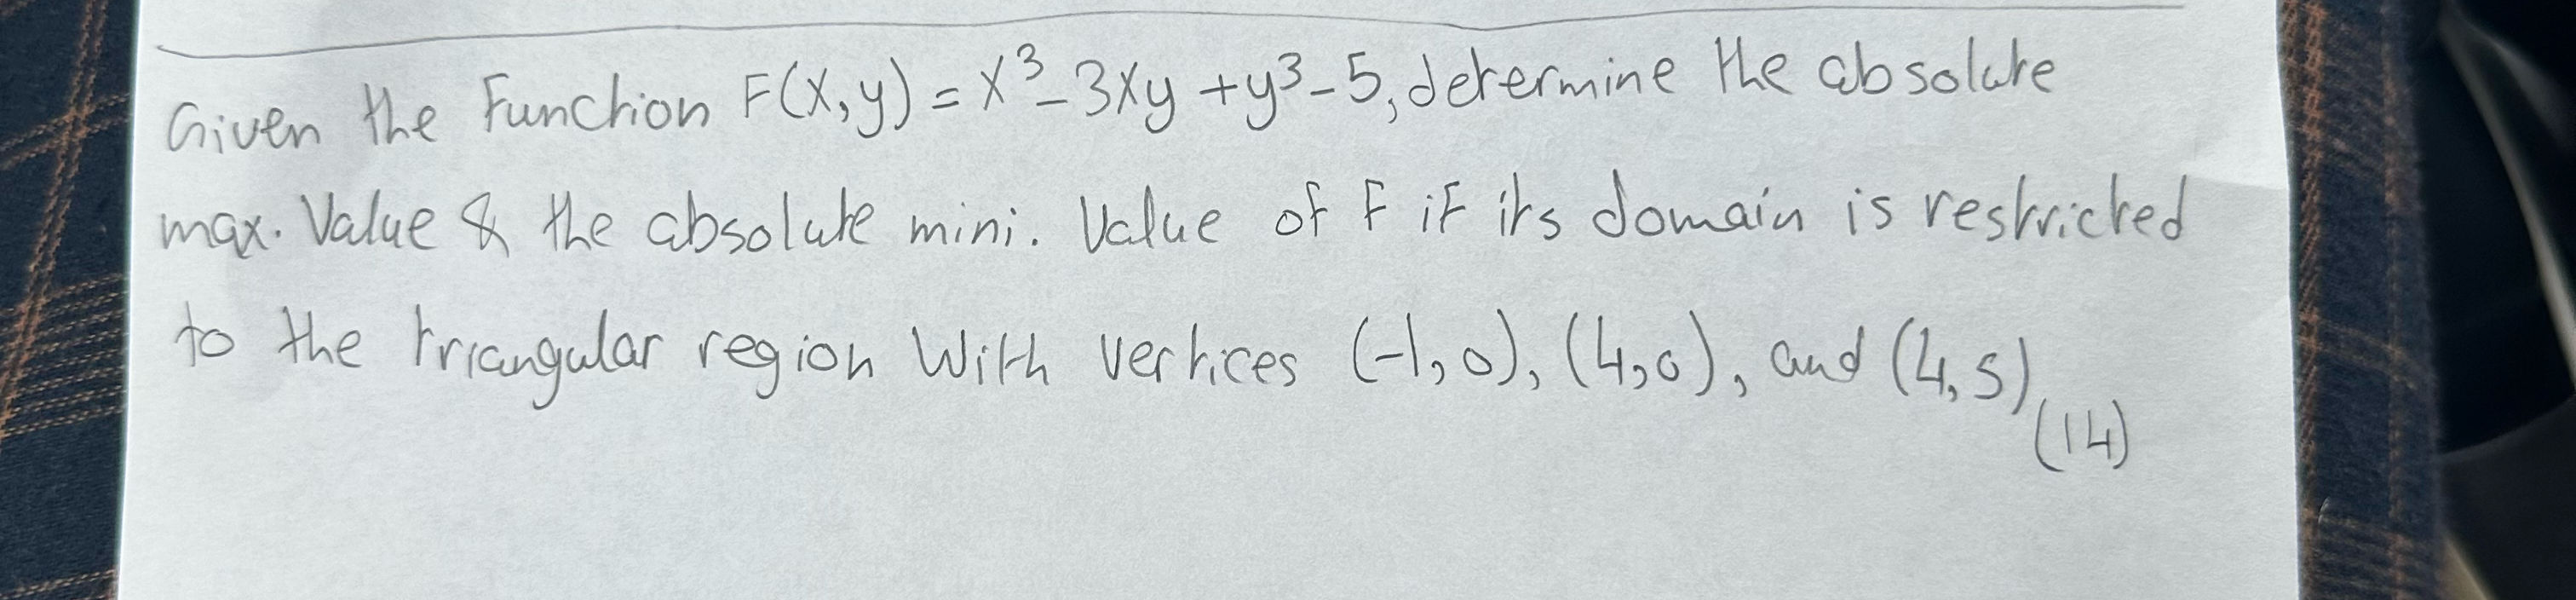 Given the Function F(x,y) = x³ - 3xy + y³ - 5, determine the absolute
max. Value & the absolute mini. Value of F if its domain is restricted
to the triangular region With vertices (-1,0), (4,0), and (4,5)
(14)